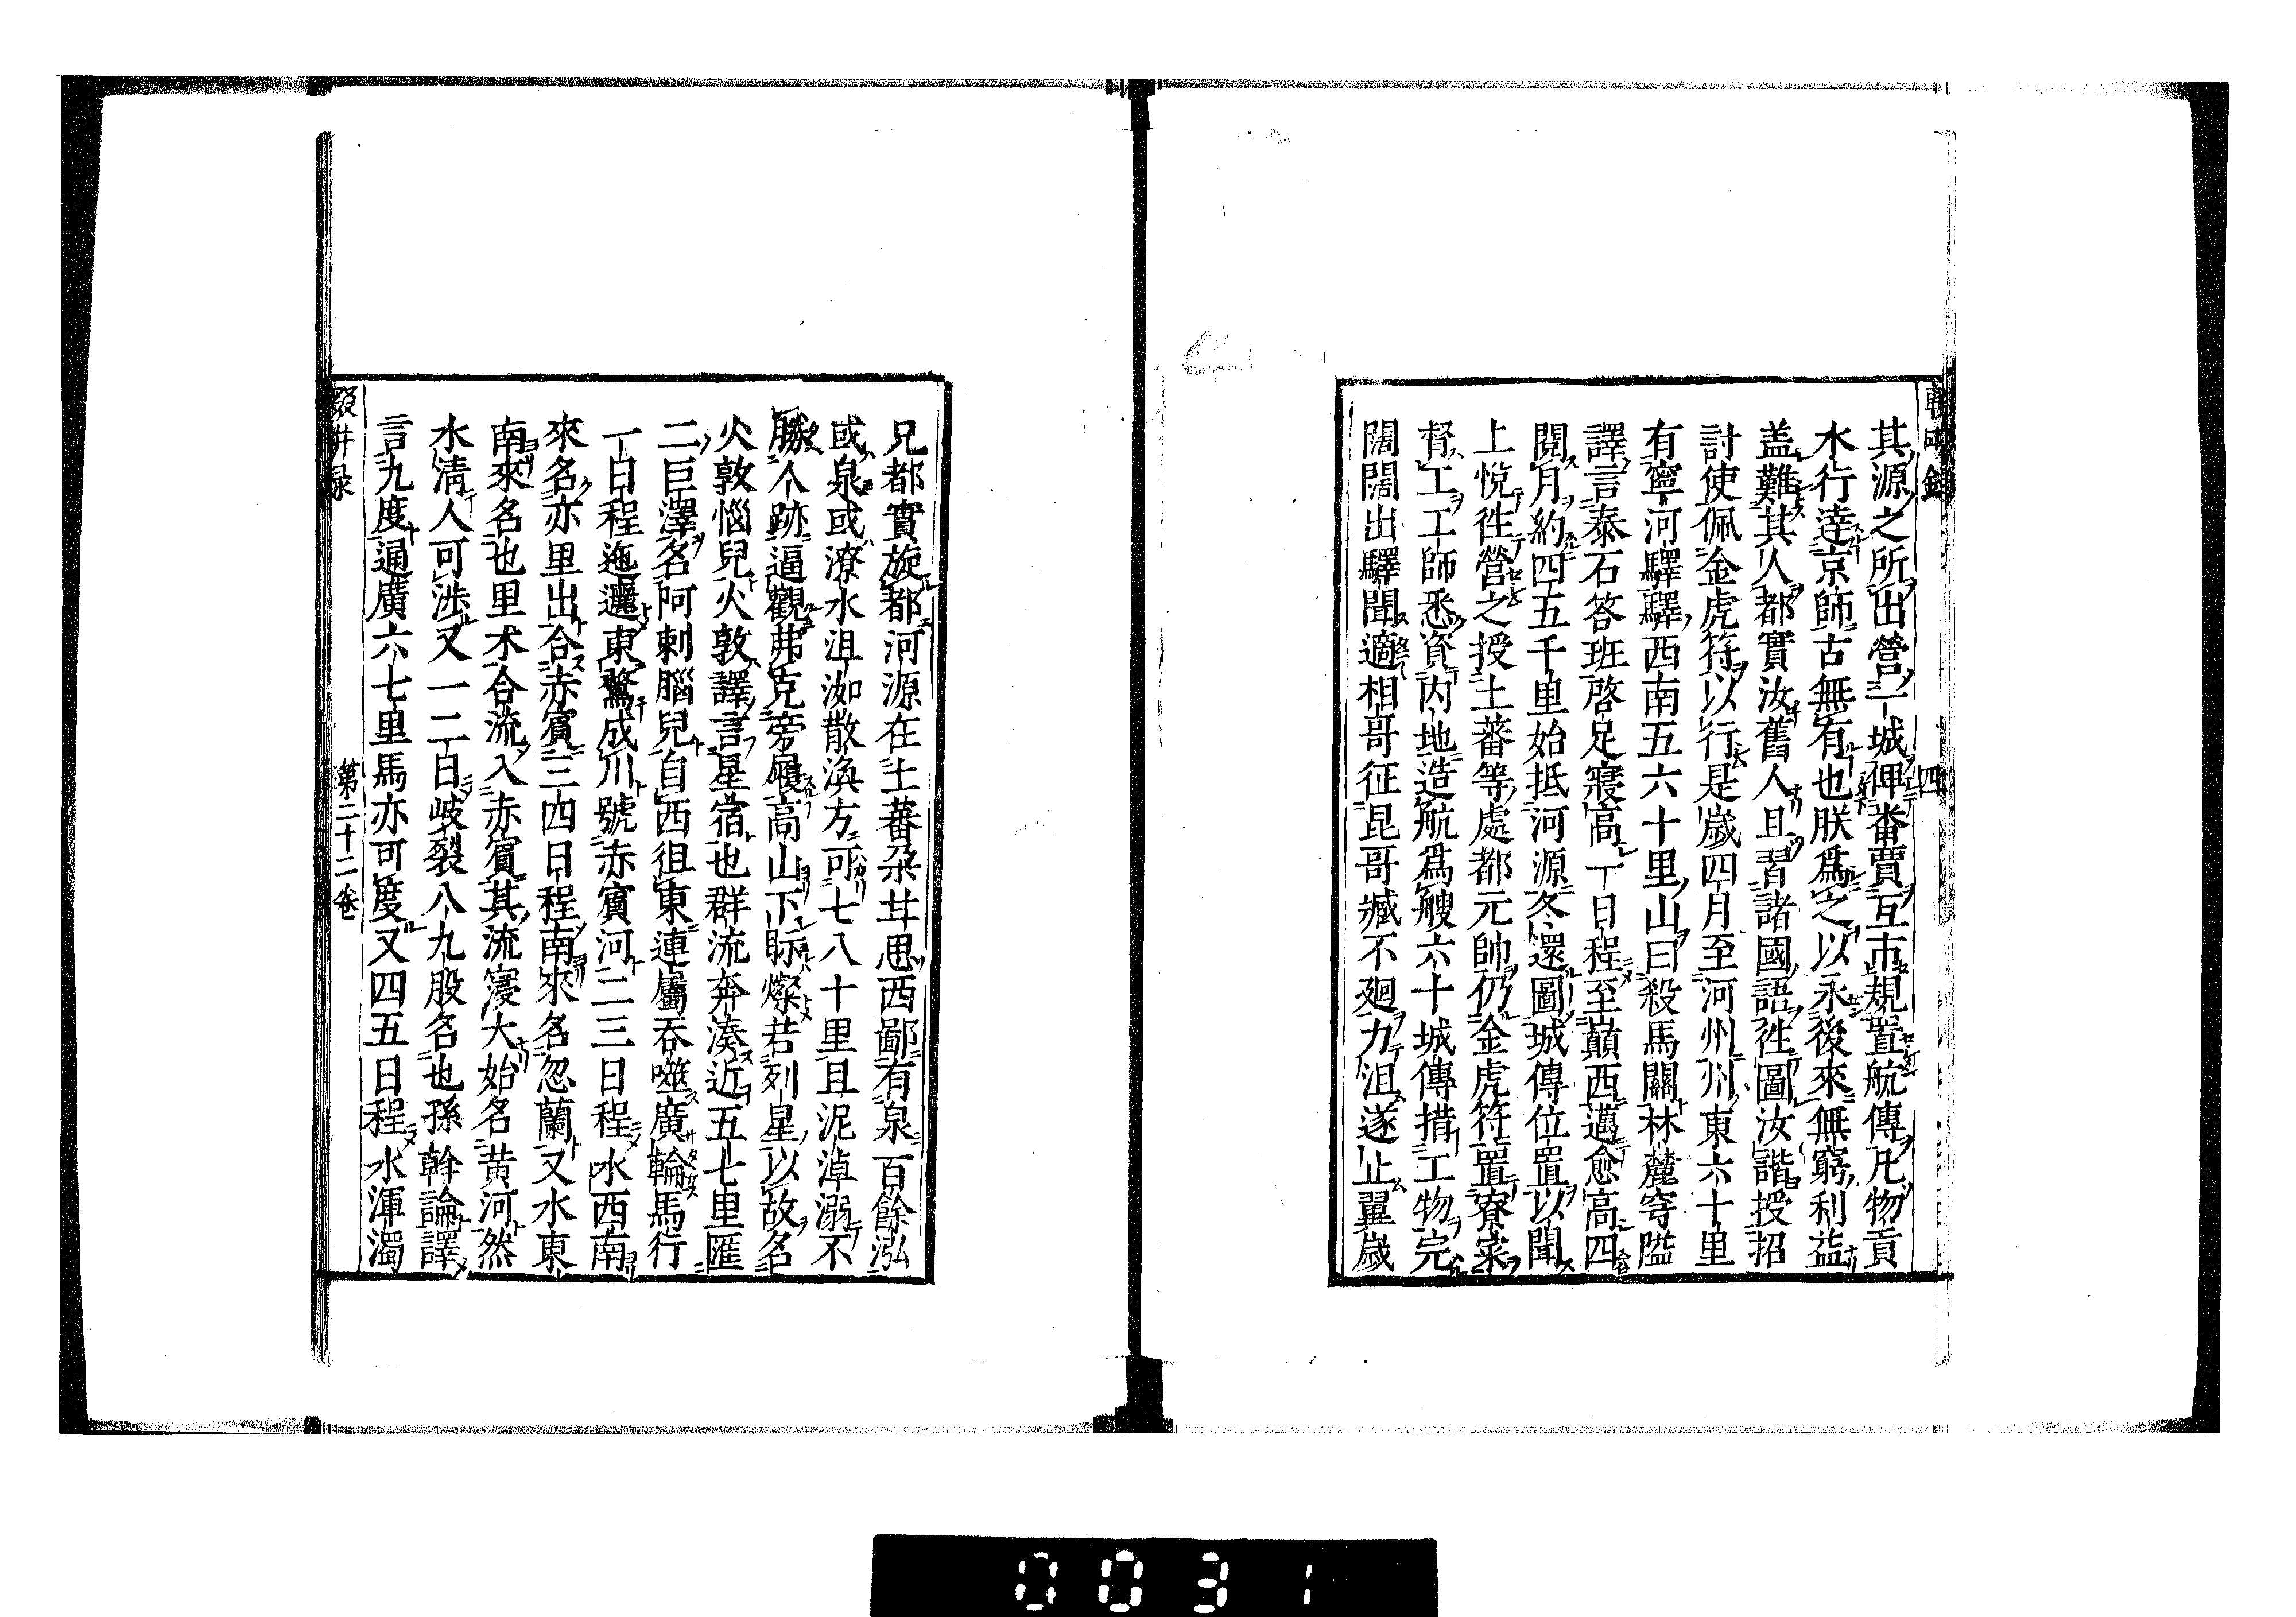 其源之所出營一城俾番賈互市規置航傳凡物貢
水行達京師古無有也朕爲之以永後來無窮利益
盖難其人都實汝舊人且習諸國語徃圖汝諧授招
討使佩金虎符以行是歲四月至河州州東六十里
有寧河驛驛西南五六十里山曰殺馬關林麓穹隘
譯言泰石答班啓足寖高一日程至巔西邁愈高四
閱月約四五千里始抵河源冬還圖城傳位置以聞
上悅徃營之授土蕃等處都元帥仍金虎符置寮寀
督工工師悉資内地造航爲艘六十城傳措工物完
闊闊出驛聞適相哥征昆哥臧不廻力沮遂止翼歲
四
兄都實旋都河源在土蕃朶甘思西鄙有泉百餘泓
或泉或潦水沮洳散渙方可七八十里且泥淖溺不
勝人跡逼觀弗克旁履高山下眎燦若列星以故名
火敦惱兒火敦譯言星宿也群流奔湊近五七里匯
二巨澤名阿剌腦兒自西徂東連屬吞噬廣輪馬行
一日程迤邐東騖成川號赤賓河二三日程水西南
來名亦里出合赤賓三四日程南來名忽蘭又水東
南來名也里术合流入赤賓其流寖大始名黄河然
水清人可涉又一二日岐裂八九股名也孫斡論譯
言九度通廣六七里馬亦可度又四五日程水渾濁
第二十二卷
0031